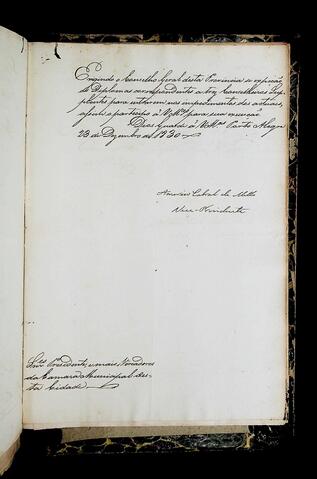 Exigindo o Conselho Geral desta Provincia a expedição
de Diplomas correspondentes a tres Conselheiros Sup-
plentes para entrarem nos impedimentos dos actuaes,
assim o participo a V.Mces para sua execução
Deos guarde a V.Mces Porto Alegre
23 de Dezembro de 1830
Americo Cabral de Mello
Vice-Prezidente
Snres Presidente, e mais Vereadores
da Camara Municipal des-
ta Cidade